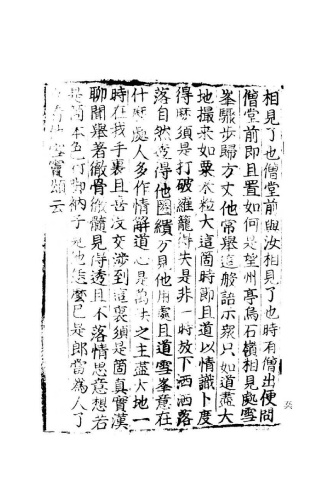 相見了也僧堂前與汝相見了也時有僧出便問
僧堂前即且置如何是望州亭烏石嶺相見處雪
峯驟步歸方丈他常舉這般語示衆只如道盡大
地撮來如粟米粒大這箇時即且道以情識卜度
得麽須是打破羅籠得失是非一時放下洒洒落
落自然透得他圈繢方見他用處且道雪峯意在
什麽處人多作情解道心是萬法之主盡大地一
時在我手裏且喜沒交涉到這裏須是箇真實漢
聊聞舉著徹骨徹髓見得透且不落情思意想若
是箇本色行脚衲子見他怎麽已是郎當爲人了
也看他雪竇頌云